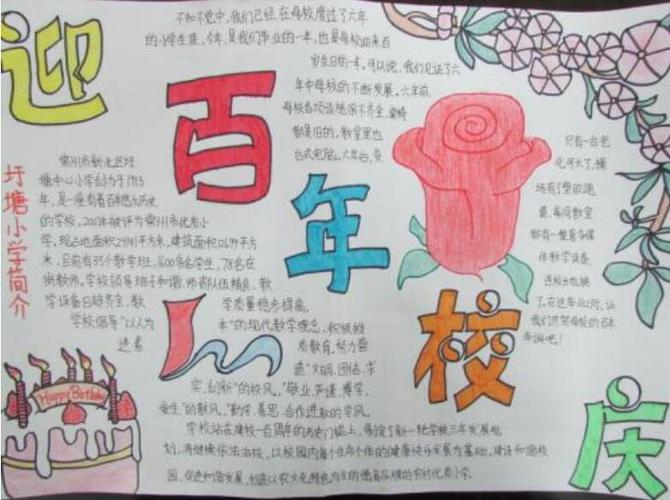 迎
百
年
校
庆
不知不觉中，我们已经在母校度过了六年
的小学生涯，今年，是我们毕业的一年，也是母校迎来百
岁生日的一年，可以说，我们见证了六
年中母校的不断发展。六年前，
母校各项设施很不齐全，桌椅
都是旧的，教室里也
只有一台老
台式电脑。六年后，变
化可大了，操
场有了塑胶跑
道，每间教室
都有一整套多媒
体教学设备，
了，在这年，让
我们共贺母校的百年
华诞吧！
圩塘小学简介
常州市新北区圩
塘中心小学创办于1913
年，是一座有着百年悠久历史
的学校，被评为常州市优秀小
学，现占地面积平方米，建筑面积平方
米，目前有35个教学班，1600多名学生，78名在
岗教师。学校领导班子和谐，师资队伍精良，教
学设备日趋齐全，教
学质量稳步提高。
学校倡导“以人为
本”的现代教学理念，积极推
进素
质教育，努力营
造“文明、团结、求
实、创新”的校风，“敬业、严谨、博学、
爱生”的教风，“勤学、善思、合作进取的学风。
学校站在建校一百周年的历史门槛上，制定了新一轮学校三年发展规
划，将继续依法治校，以校园内每个生命个体的健康快乐发展为基础，建设和谐校
园，促进和谐发展，创造以农文化特色为主的德育品牌的农村优秀小学。
Happy Birthday